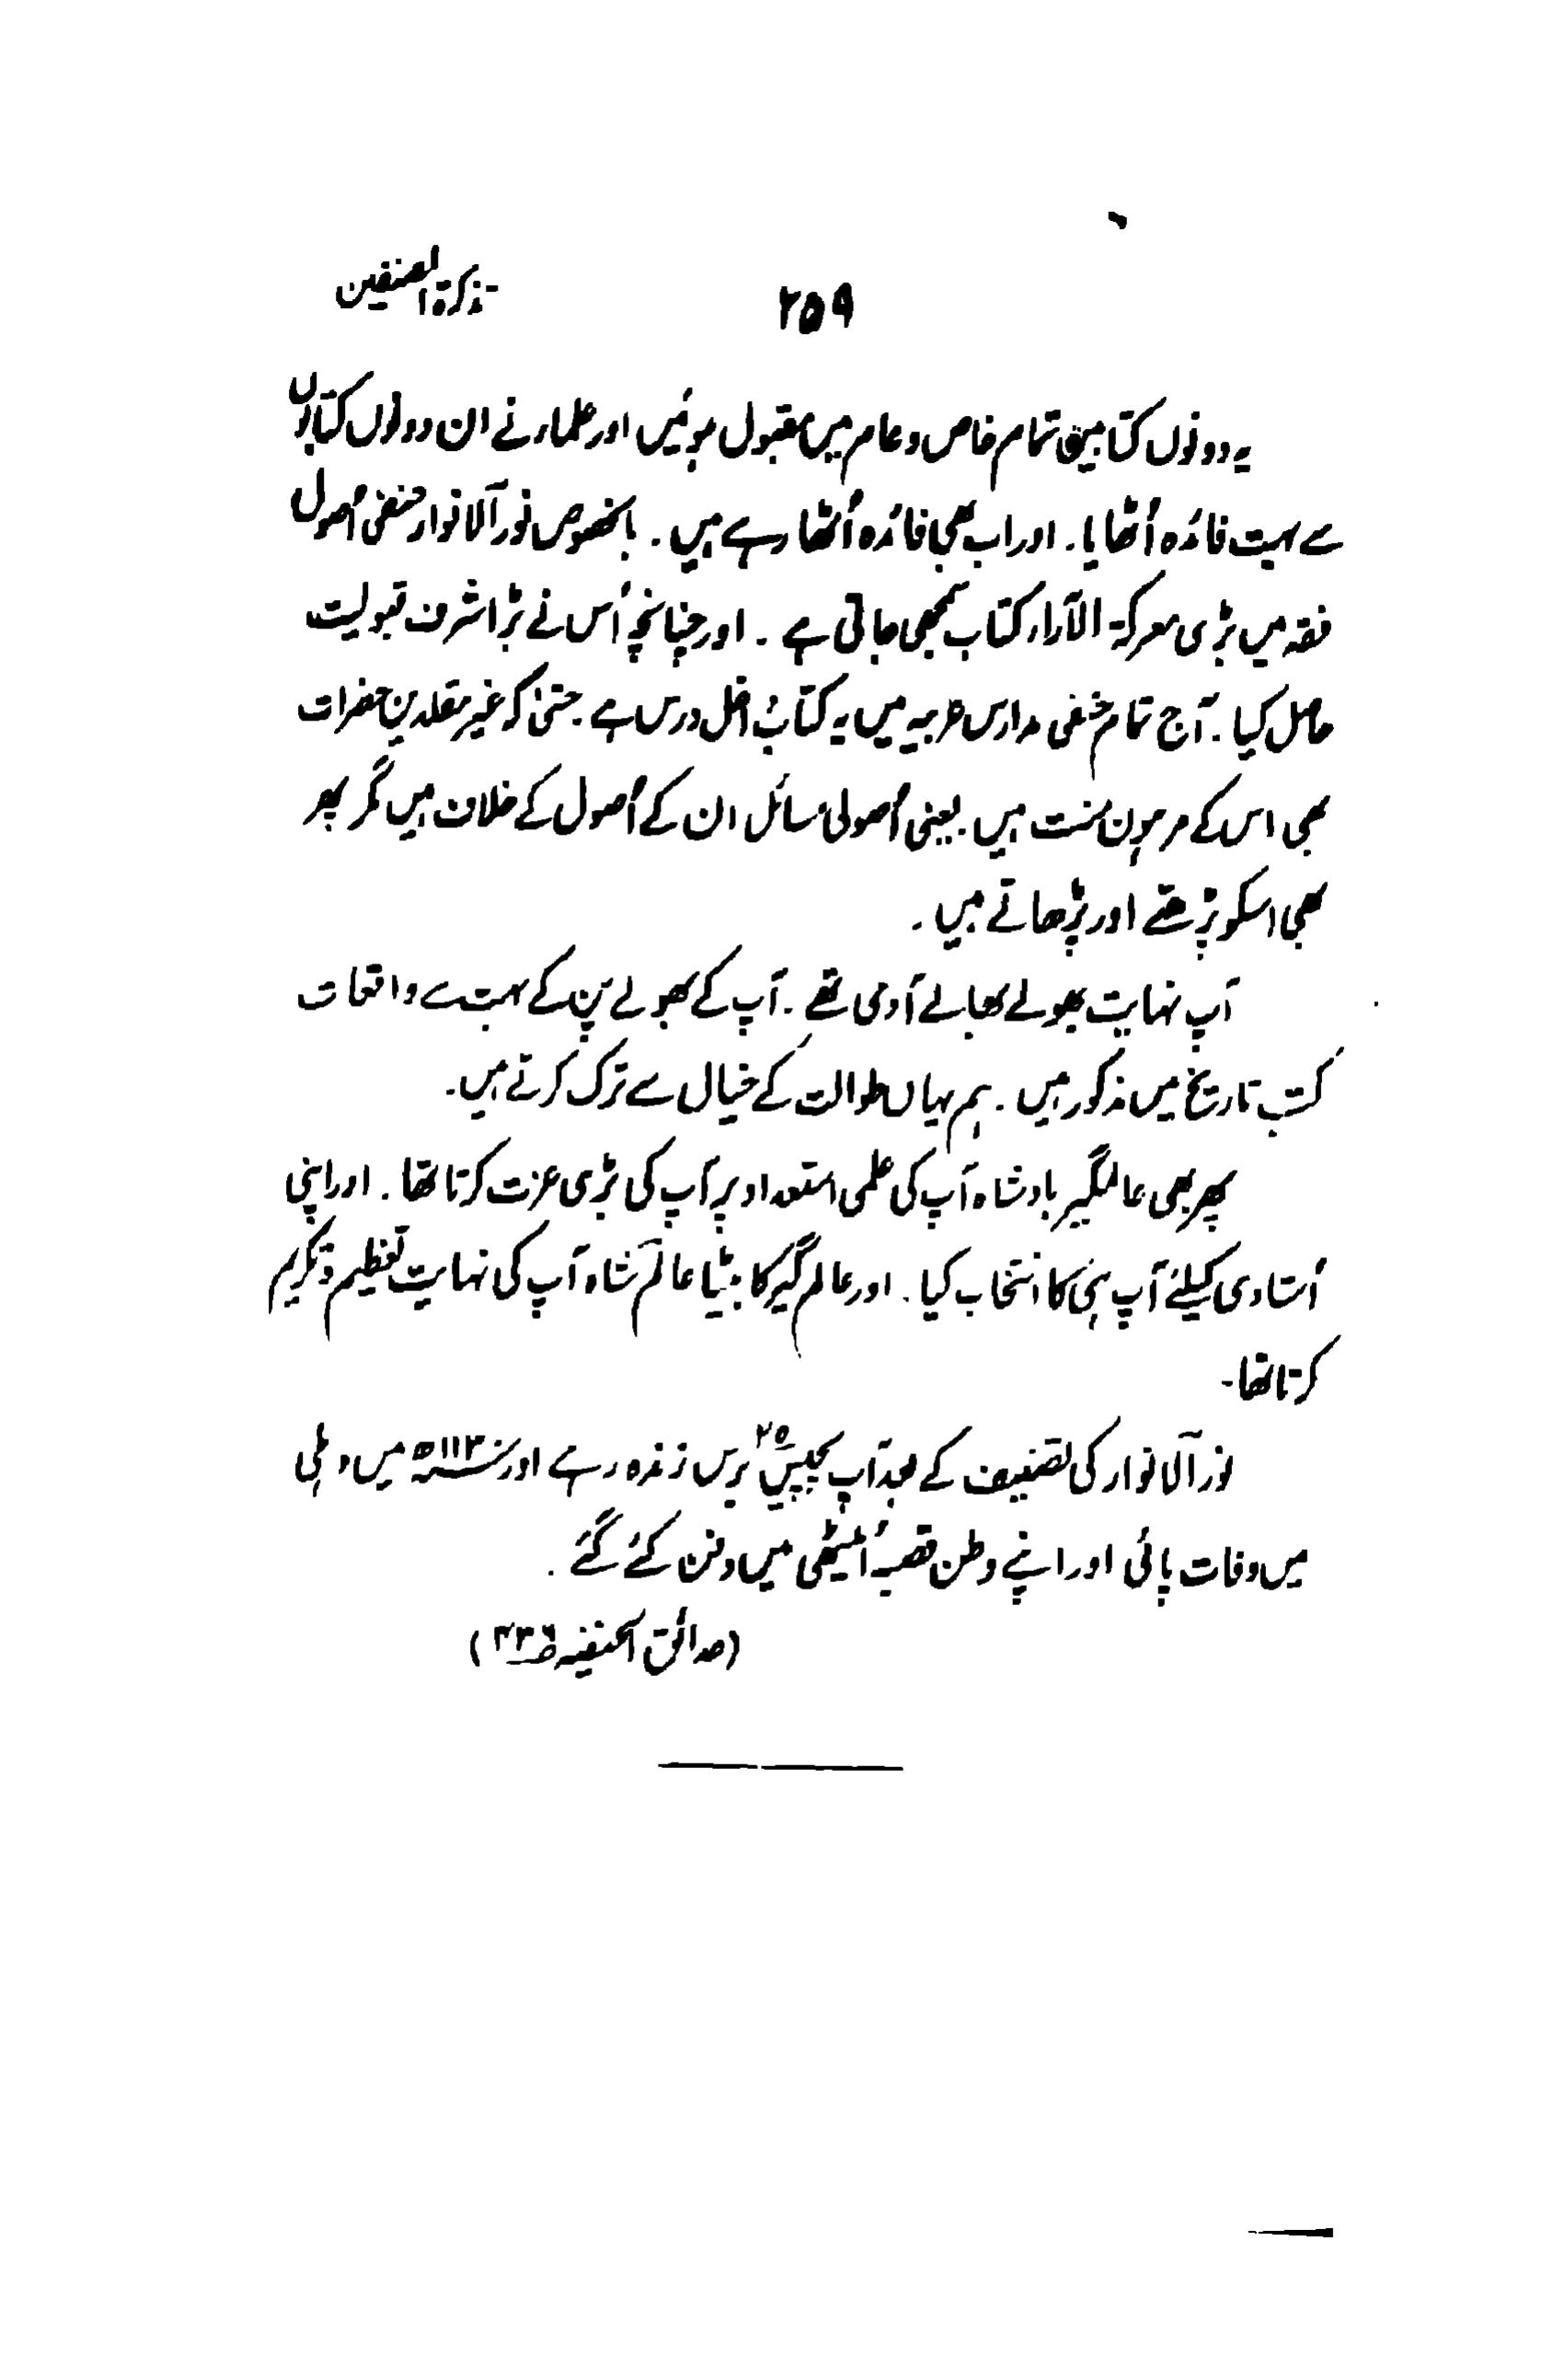 تذکرۃ المصنفین
۲۵۹
یہ دونوں کتابیں تمام خاص و عام میں مقبول ہوئیں اور علماء نے ان دونوں کتابوں
سے بہت فائدہ اُٹھایا۔ اور اب بھی فائدہ اُٹھا رہے ہیں۔ بالخصوص نور الانوار حنفی اُصول
فقہ میں بڑی معرکۃ الآراء کتاب سمجھی جاتی ہے۔ اور چنانچہ اُس نے بڑا شرف قبولیت
حاصل کیا۔ آج تمام حنفی مدارس عربیہ میں یہ کتاب داخل درس ہے۔ حتیٰ کہ غیر مقلدین حضرات
بھی اس کے مرہون منت ہیں۔ یعنی اُصولی مسائل ان کے اُصول کے خلاف ہیں مگر پھر
بھی اسکو پڑھتے اور پڑھاتے ہیں۔
آپ نہایت بھولے بھالے آدمی تھے۔ آپ کے بھولے پن کے بہت سے واقعات
کتب تاریخ میں مذکور ہیں۔ ہم یہاں طوالت کے خیال سے ترک کرتے ہیں۔
پھر بھی عالمگیر بادشاہ آپ کی علمی استعداد پر آپ کی بڑی عزت کرتا تھا۔ اور اپنی
اُستادی کیلئے آپ ہی کا انتخاب کیا۔ اور عالم گیر کا بیٹا عالم شاہ آپ کی نہایت تعظیم و تکریم
کرتا تھا۔
نور الانوار کی تصنیف کے بعد آپ پچیس ۲۵ برس زندہ رہے اور میں دہلی
میں وفات پائی اور اپنے وطن قصبہ اُمیٹھی میں دفن کئے گئے۔
(حدائق الحنفیہ)